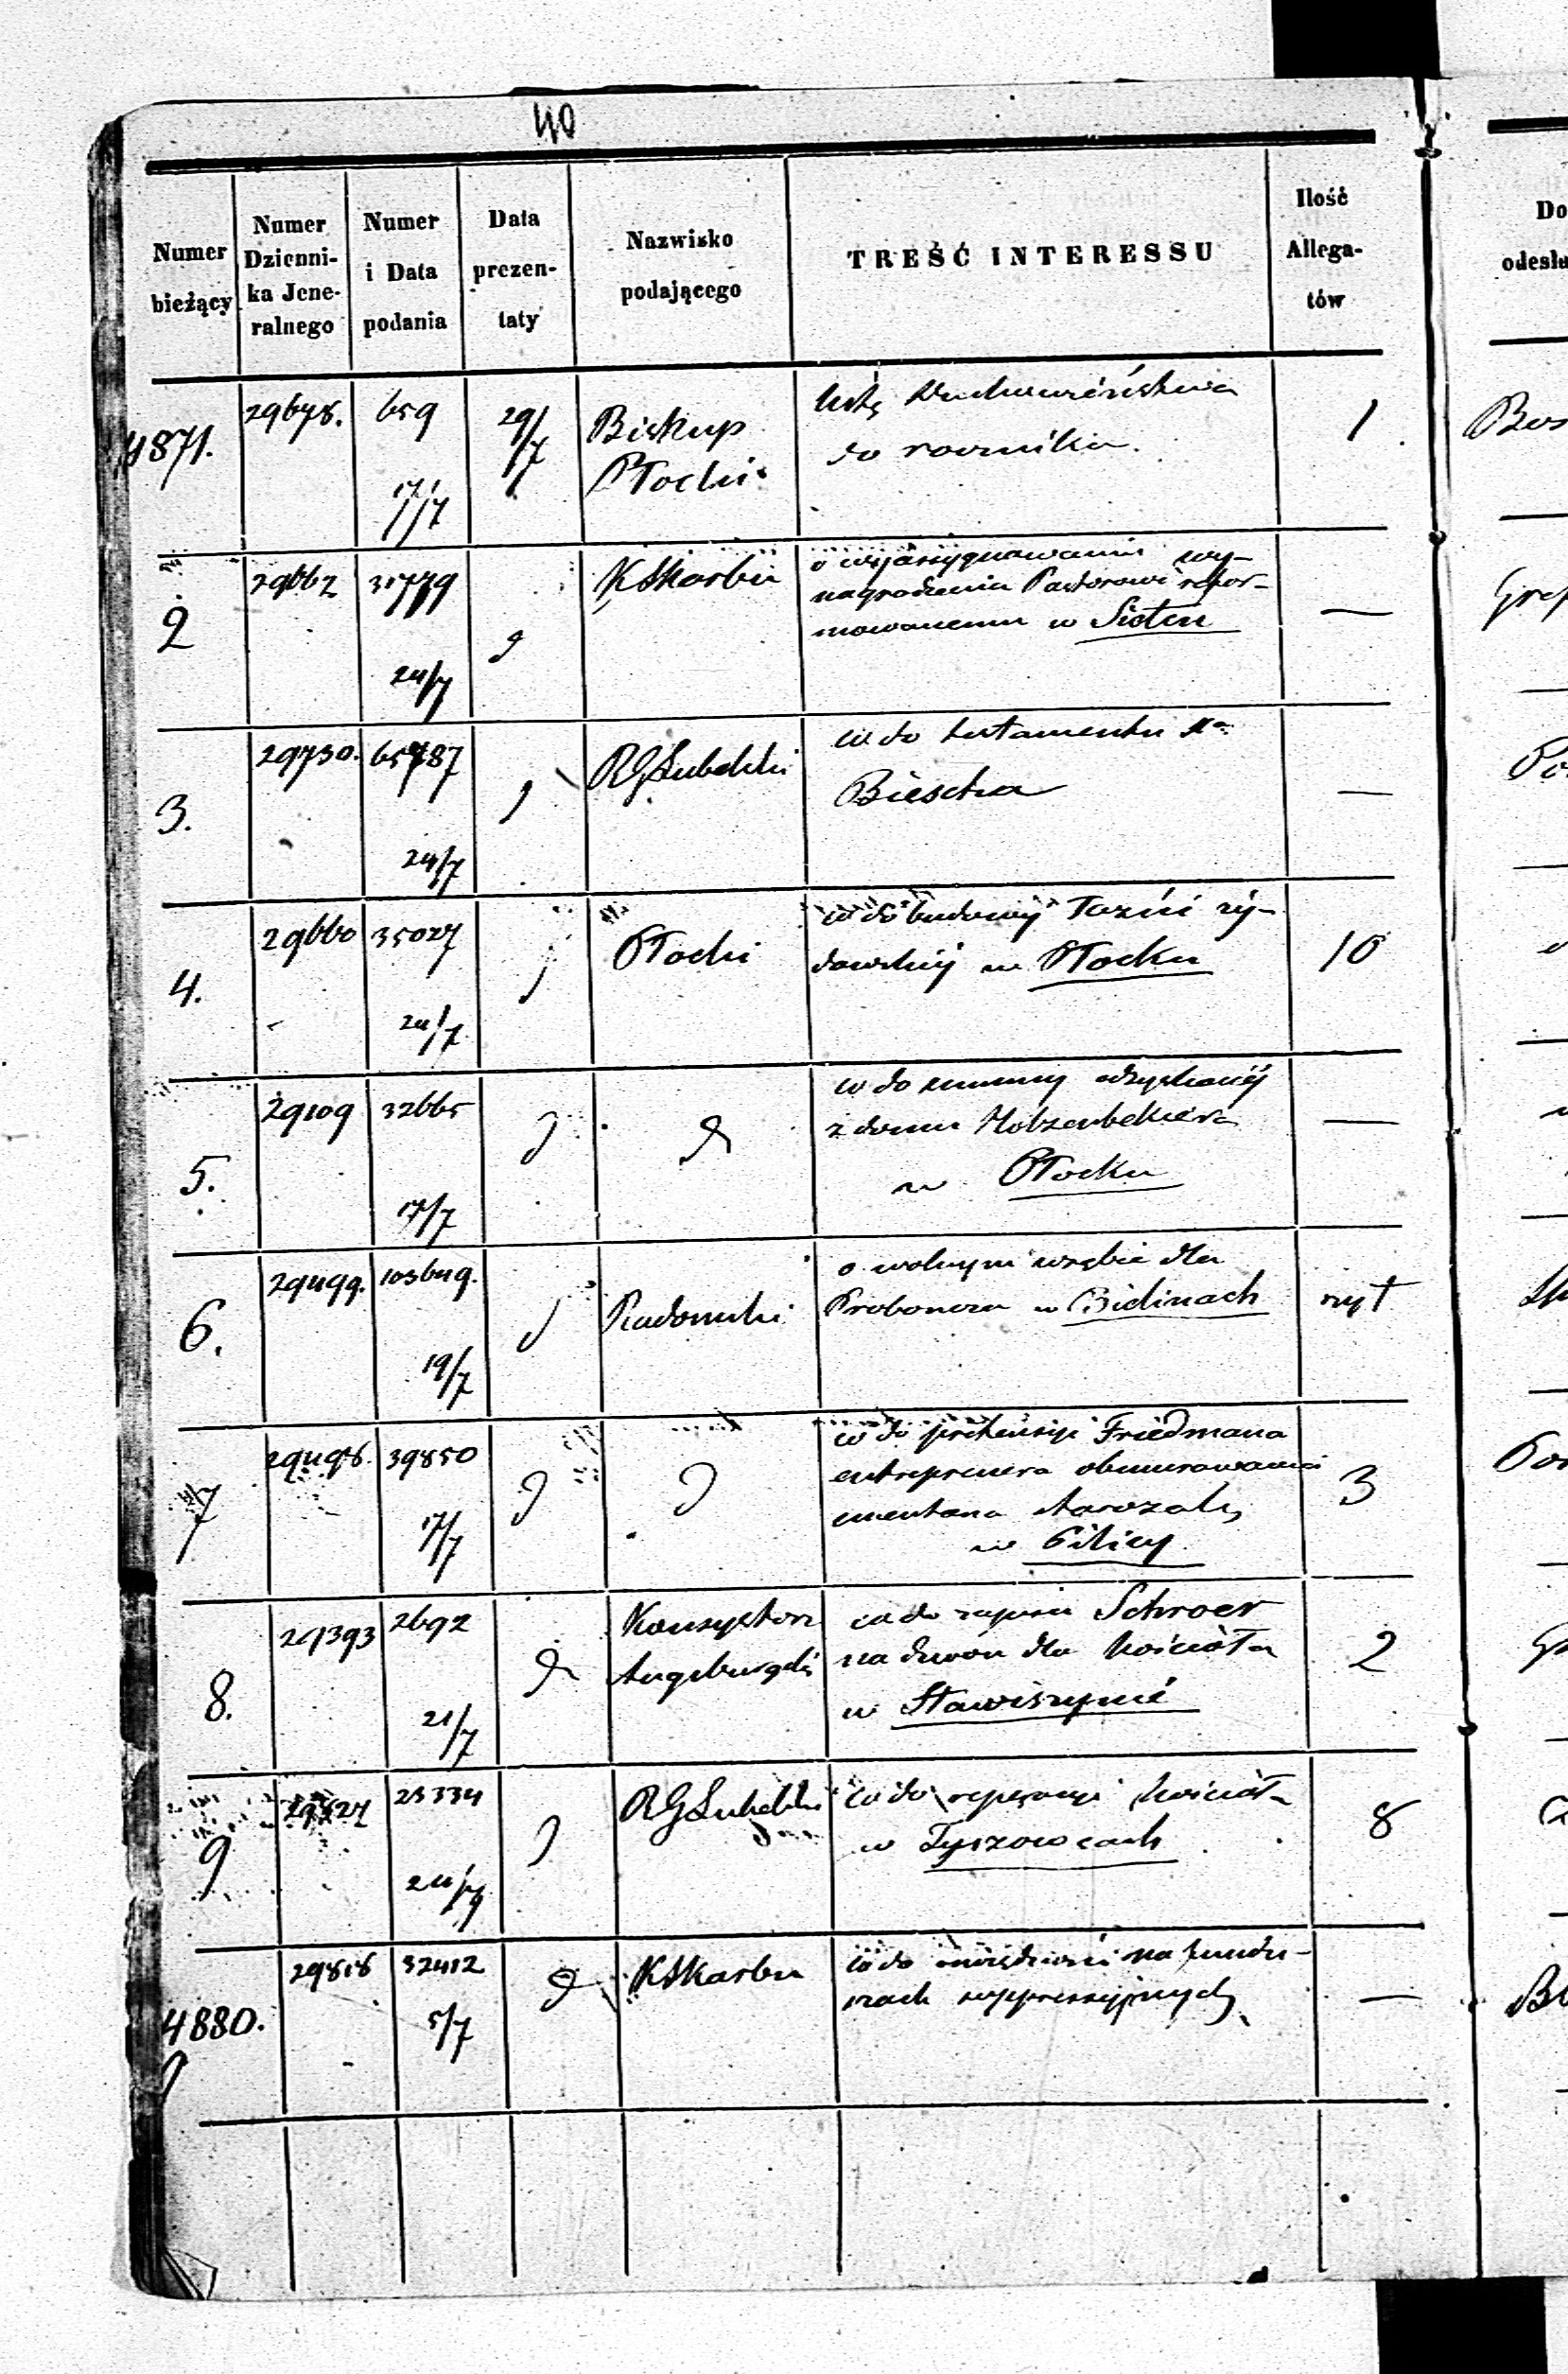 40
Numer bieżący
Numer Dzienni-
ka Jene-
ralnego
Numer i Data podania
Data prezen-
taty
Nazwisko podającego
TREŚĆ INTERESSU
Ilość Allega-
tów
Do
odesła
4871. 29678. 659 17/7 29/7
Biskup
Płocki
listę Duchowieństwa
do rocznika.
1
2 29662 31779 24/7
K Skarbu
o wyasygnowanie wy-
nagrodzenia Pastorowi refor-
mowanemu w
—
3. 29730. 65787 24/7
RGLubelski
co do testamentu
—
4. 29660 35027 24/7
Płocki
co do budowy Łaźni ży-
dowskiej w Płocku
10
5. 29109 32665 17/7
co do summy odzyskanéj
z domu
w Płocku
—
6. 29499. 103649. 19/7
Radomski
o wolnym wrębie dla
Proboszcza w Bielinach
ryt
7 29498. 39850 17/7
co do pretensyi Friedmana
entreprenera obmurowania
cmentarza starozak.
w Pilicy
3
8. 29393 2692 21/7
Konsystorz
Augsburgski
co do zapisu Schroer
na dzwon dla kościoła
w Stawiszynie
2
9 29827 23334 24/7
RGLubelski
co do reperacyi kościoła
w Tyszowcach
8
4880. 29818 32412 5/7
K Skarbu
co do na fundu-
szach suppressyjnych
—